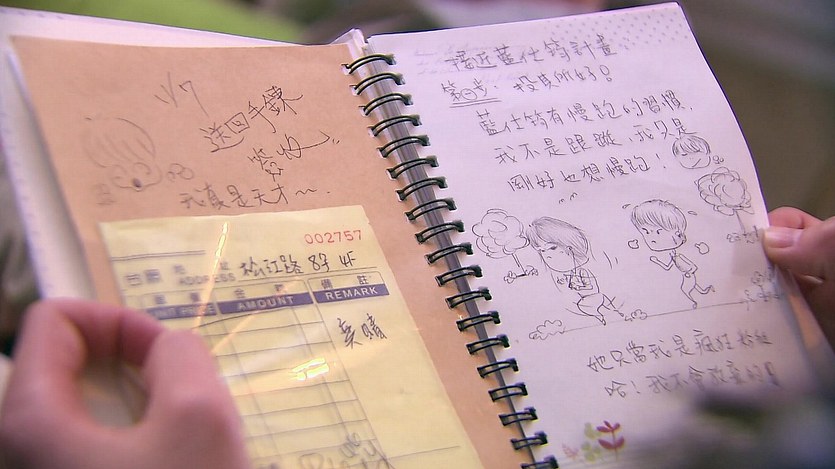 1/7
送回手鍊
簽收
我真是天才～
002757
ADDRESS 松江路 8号 4F
UNIT PRICE AMOUNT REMARK
接近藍仕筠計畫
投其所好!
藍仕筠有慢跑的習慣,
我不是跟蹤, 我只是
剛好也想慢跑!
她只當我是瘋狂粉絲
哈! 我不會放棄的!